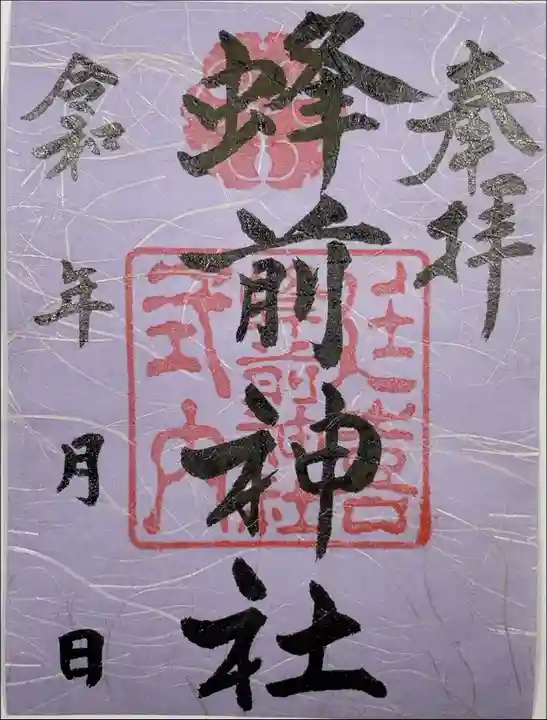 奉拝
蜂前神社
令和 年 月 日
延喜
蜂前神社
式内